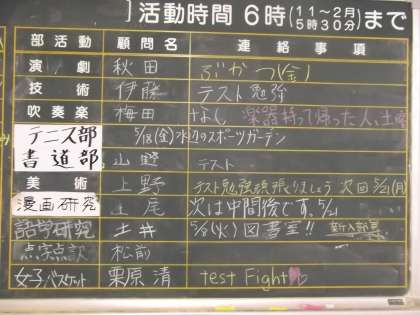 活動時間 6時(11~2月 5時30分)まで
部活動 顧問名 連絡事項
演劇 秋田 ぶかつ(金)
技術 伊藤 テスト勉強
吹奏楽 梅田 なし 楽器持って帰った人、土曜
テニス部 5/18(金)水辺のスポーツガーデン
書道部 山野 テスト
美術 上野 テスト勉強頑張りましょう 次回5/21(月)
漫画研究 土尾 次は中間後です。5/21
語学研究 土井 5/8(火)図書室!! 新入部員
点字点訳 松前
女子バスケット 栗原 清 test Fight